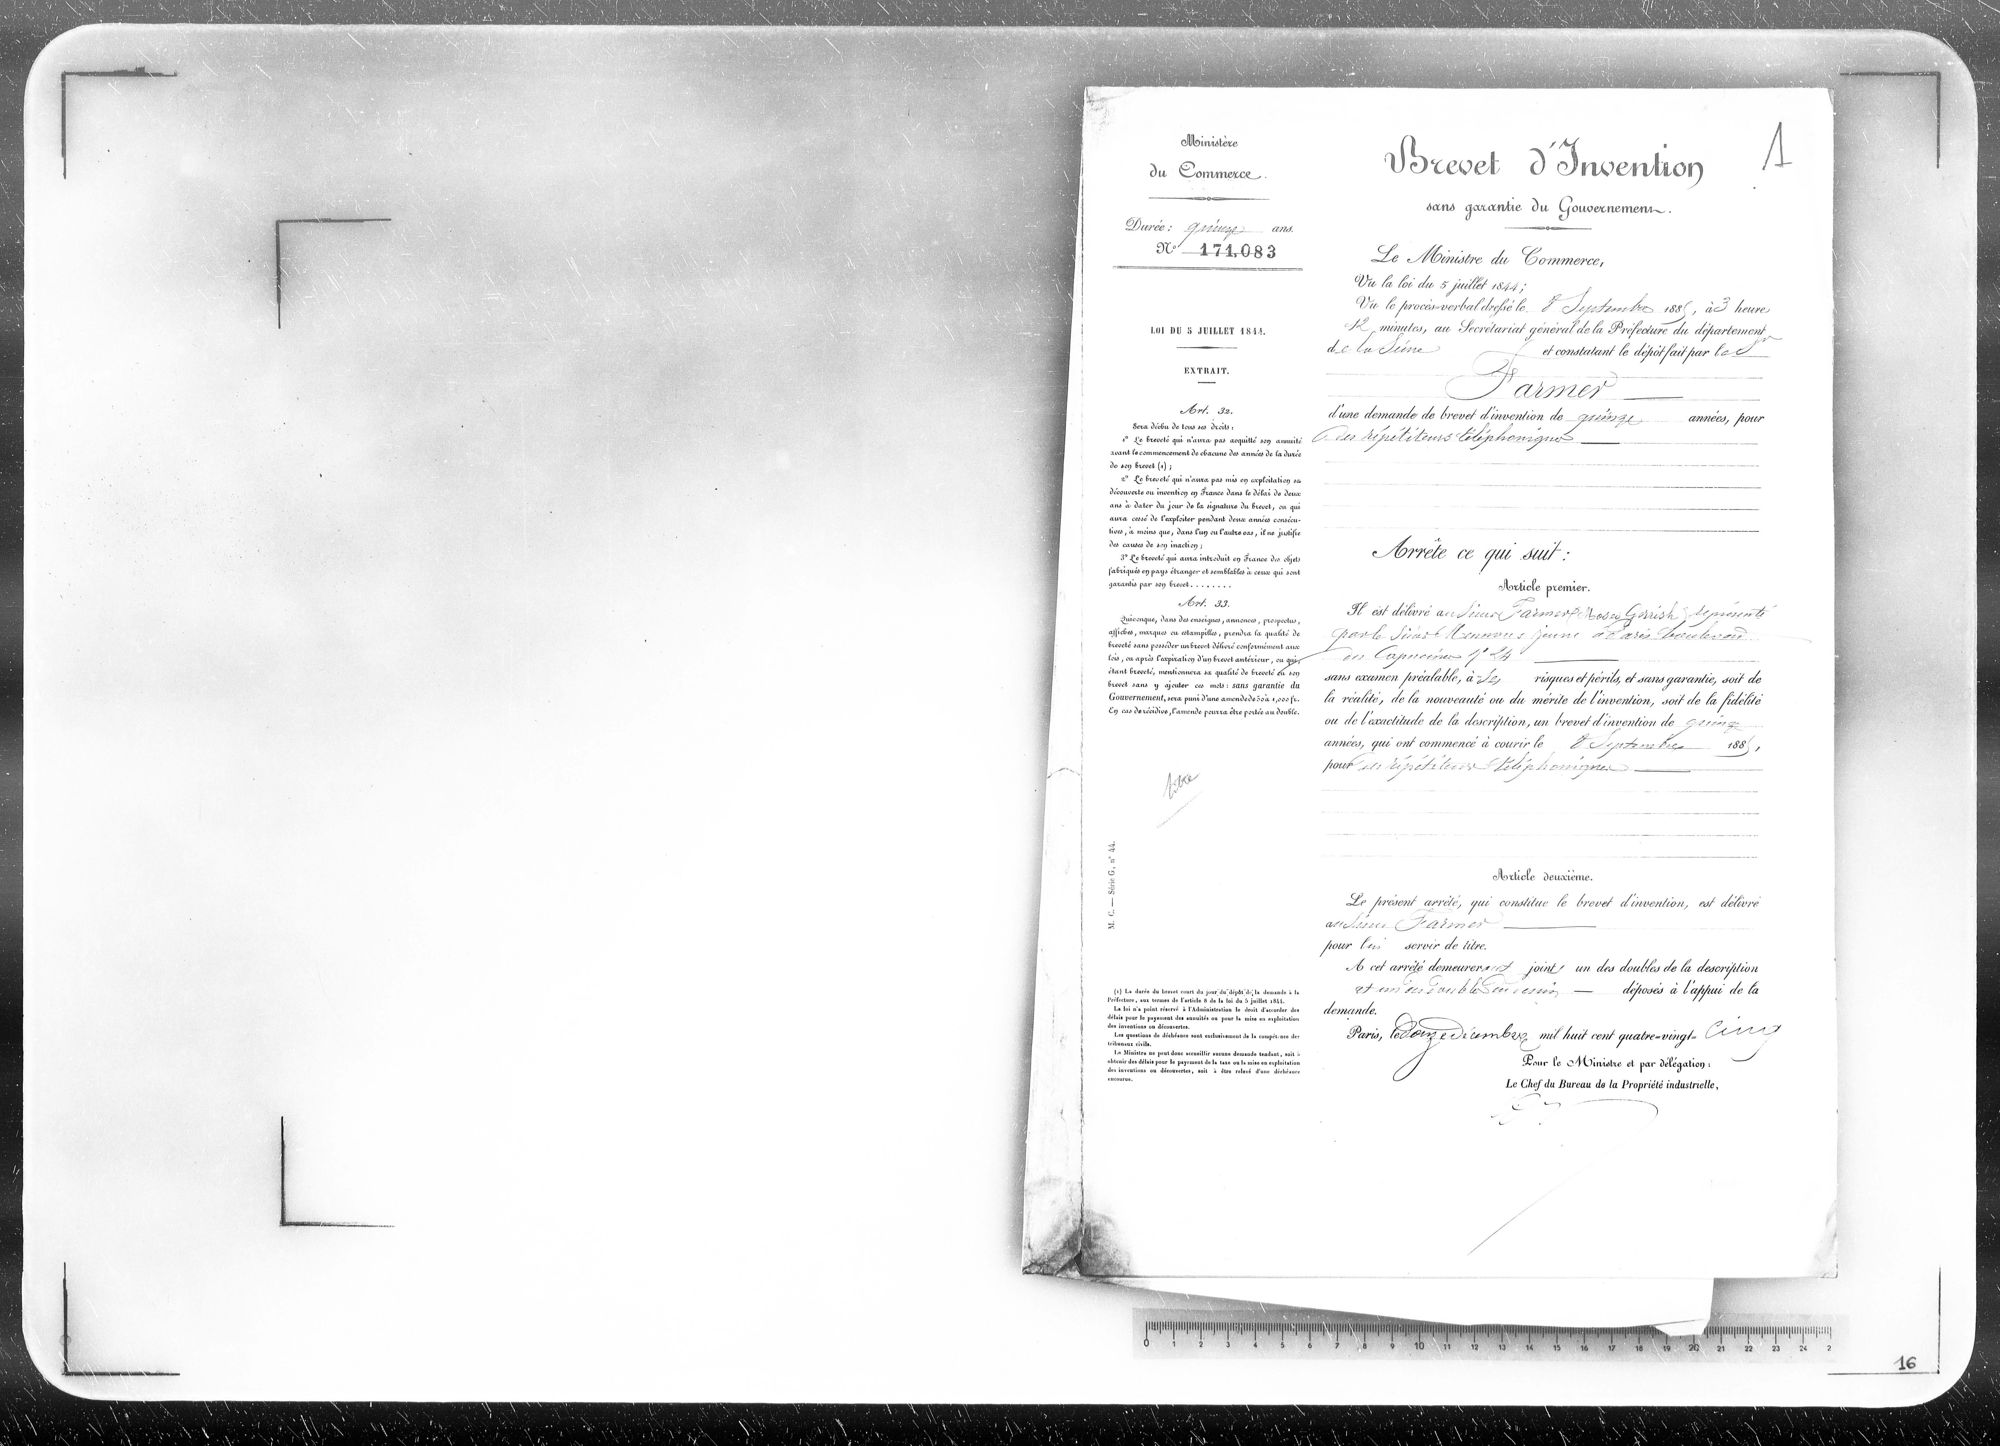 Ministère
du Commerce.
Durée : quinze ans.
N° 171,083
LOI DU 5 JUILLET 1844.
EXTRAIT.
Art. 32.
Sera déchu de tous ses droits :
1° Le breveté qui n'aura pas acquitté son annuité
avant le commencement de chacune des années de la durée
de son brevet (1) ;
2° Le breveté qui n'aura pas mis en exploitation sa
découverte ou invention en France dans le délai de deux
ans à dater du jour de la signature du brevet, ou qui
aura cessé de l'exploiter pendant deux années consécu-
tives, à moins que, dans l'un ou l'autre cas, il ne justifie
des causes de son inaction ;
3° Le breveté qui aura introduit en France des objets
fabriqués en pays étranger et semblables à ceux qui sont
garantis par son brevet . . . . . . . .
Art. 33.
Quiconque, dans des enseignes, annonces, prospectus,
affiches, marques ou estampilles, prendra la qualité de
breveté sans posséder un brevet délivré conformément aux
lois, ou après l'expiration d'un brevet antérieur, ou qui,
étant breveté, mentionnera sa qualité de breveté ou son
brevet sans y ajouter ces mots : sans garantie du
Gouvernement, sera puni d'une amende de 50 à 1,000 fr.
En cas de récidive, l'amende pourra être portée au double.
titre
M. C. — Série G, n° 44.
(1) La durée du brevet court du jour du dépôt de la demande à la
Préfecture, aux termes de l'article 8 de la loi du 5 juillet 1844.
La loi n'a point réservé à l'Administration le droit d'accorder des
délais pour le payement des annuités ou pour la mise en exploitation
des inventions ou découvertes.
Les questions de déchéance sont exclusivement de la compétence des
tribunaux civils.
Le Ministre ne peut donc accueillir aucune demande tendant, soit à
obtenir des délais pour le payement de la taxe ou la mise en exploitation
des inventions ou découvertes, soit à être relevé d'une déchéance
encourue.
1
Brevet d'Invention
sans garantie du Gouvernement.
Le Ministre du Commerce,
Vu la loi du 5 juillet 1844 ;
Vu le procès-verbal dressé le 8 Septembre 1885, à 3 heure
12 minutes, au Secrétariat général de la Préfecture du département
de la Seine et constatant le dépôt fait par le Sr
Farmer
d'une demande de brevet d'invention de quinze années, pour
des répétiteurs téléphoniques
Arrête ce qui suit :
Article premier.
Il est délivré au Sieur Farmer (Moses Gerrish) représenté
par le Sieur jeune à Paris boulevard
des Capucines N° 24
sans examen préalable, à ses risques et périls, et sans garantie, soit de
la réalité, de la nouveauté ou du mérite de l'invention, soit de la fidélité
ou de l'exactitude de la description, un brevet d'invention de quinze
années, qui ont commencé à courir le 8 Septembre 1885,
pour des répétiteurs téléphoniques
Article deuxième.
Le présent arrêté, qui constitue le brevet d'invention, est délivré
au Sieur Farmer
pour lui servir de titre.
A cet arrêté demeureront joints un des doubles de la description
et un des doubles du dessin déposés à l'appui de la
demande.
Paris, le douze décembre mil huit cent quatre-vingt-cinq
Pour le Ministre et par délégation :
Le Chef du Bureau de la Propriété industrielle,
0 1 2 3 4 5 6 7 8 9 10 11 12 13 14 15 16 17 18 19 20 21 22 23 24 2
16